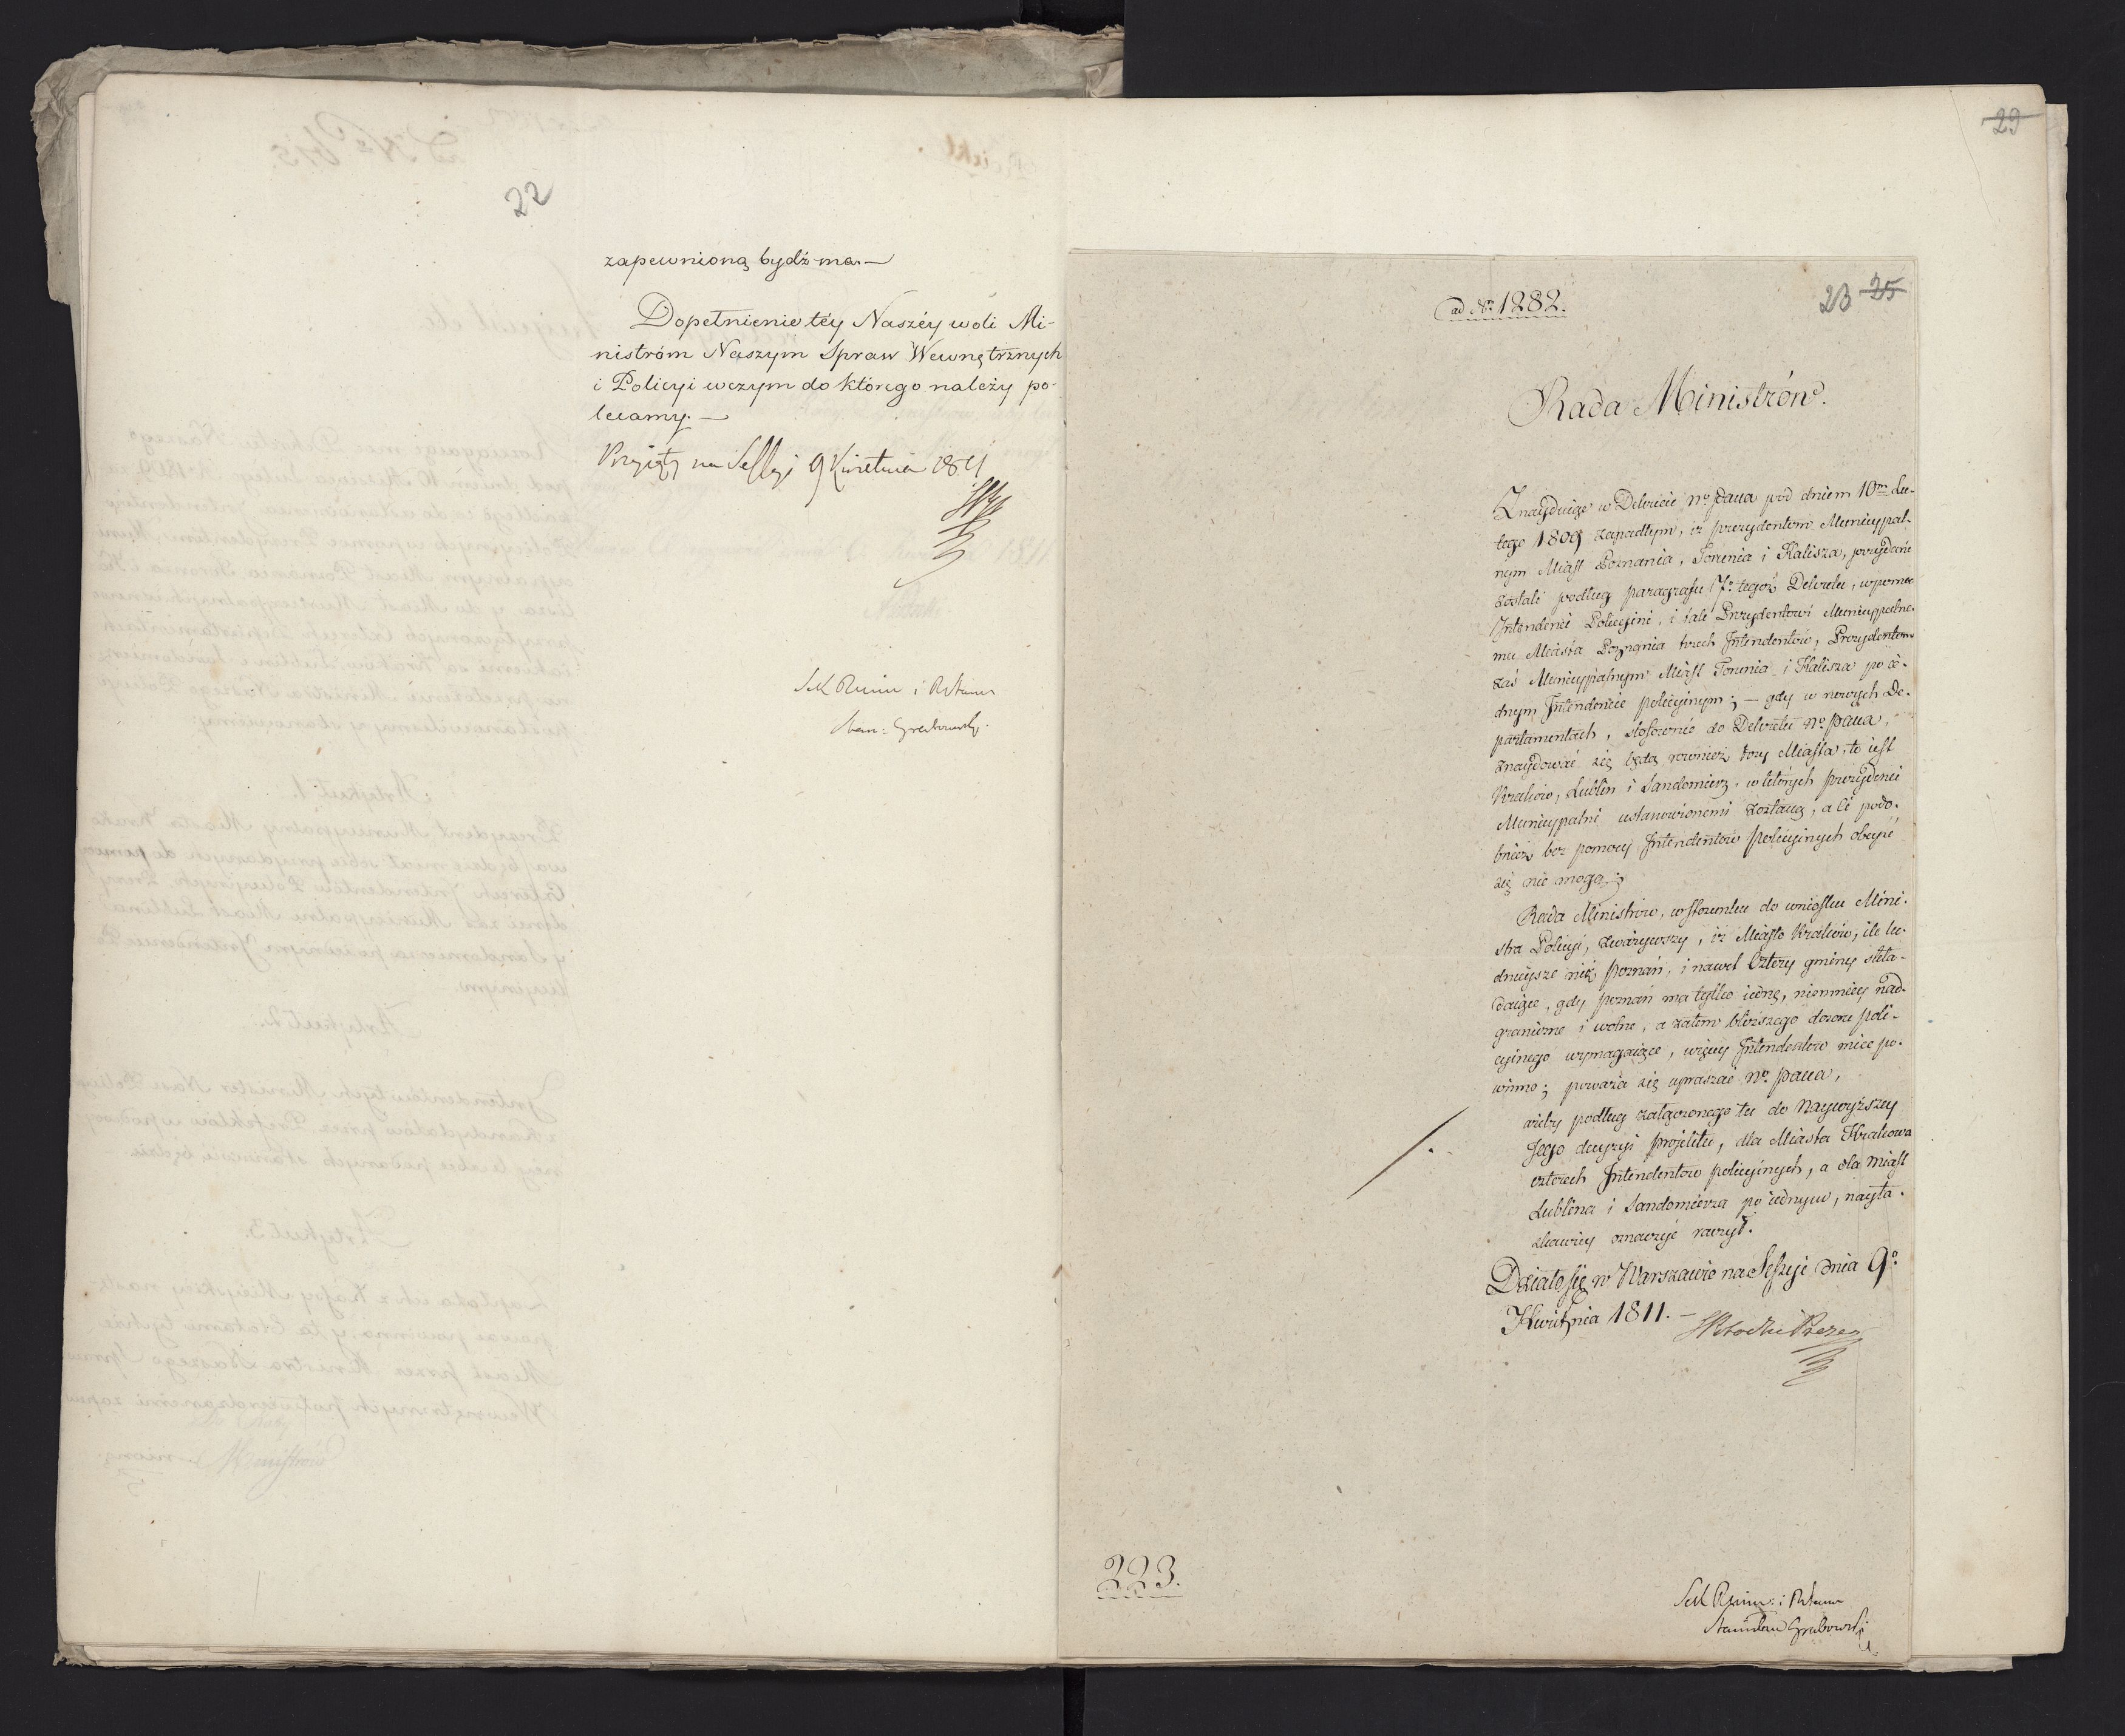 22
zapewnioną bydź ma.—
Dopełnienie téy Naszéy woli Mi-
nistróm Naszym Spraw Wewnętrznych
i Policyi w czym do którego należy po-
lecamy.—
Przyięty na Sessyi 9 Kwietnia 1811
Sek Ru i R Stanu
Stan: Grabowski.
29
ad Nr 1282.
23 25
Rada Ministrów.
Znayduiąc w Dekrecie Wo Pana pod dniem 10m Lu-
tego 1809 zapadłym, iż prezydentom Municypal-
nym Miast Poznania, Torunia i Kalisza, przydani
zostali podług paragrafu 7o tegoż Dekretu, w pomoc
Intendenci Policyini, i tak Prezydentowi Municypalne-
mu Miasta Poznania trzech Intendentów, Prezydentom
zaś Municypalnym Miast Torunia i Kalisza po ie-
dnym Intendencie policyinym; — gdy w nowych De-
partamentach, stosownie do Dekretu Wo Pana,
znaydować się będą również trzy Miasta, to iest
Kraków, Lublin i Sandomierz, w których prezydenci
Municypalni ustanowionemi zostaną, a ci podo-
bnież bez pomocy Intendentów policyinych obeyść
się nie mogą;
Rada Ministrów, w stosunku do wniosku Mini-
stra Policyi, zważywszy, iż Miasto Kraków, ile lu-
dnieysze niż Poznań, i nawet cztery gminy skła-
daiące, gdy poznań ma tylko iednę, niemniey nad-
graniczne i wolne, a zatem bliższego dozoru poli-
cyinego wymagaiące, więcey Intendentów mieć po-
winno; poważa się upraszać Wo Pana,
ażeby podług załączonego tu do Naywyższey
Jego decyzyi projektu, dla Miasta Krakowa
czterech Intendentów policyinych, a dla Miast
Lublina i Sandomierza po iednym, nayła-
skawiey oznaczyć raczył.
Działo się w Warszawie na Sessyi dnia 9o
Kwietnia 1811.—
223.
Sek i R Stanu
Stanisław Grabowski